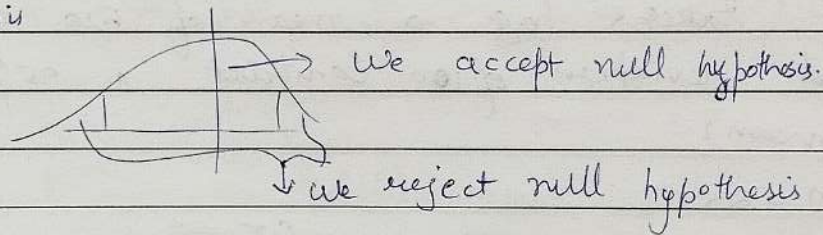 is
we accept null hypothesis.
we reject null hypothesis